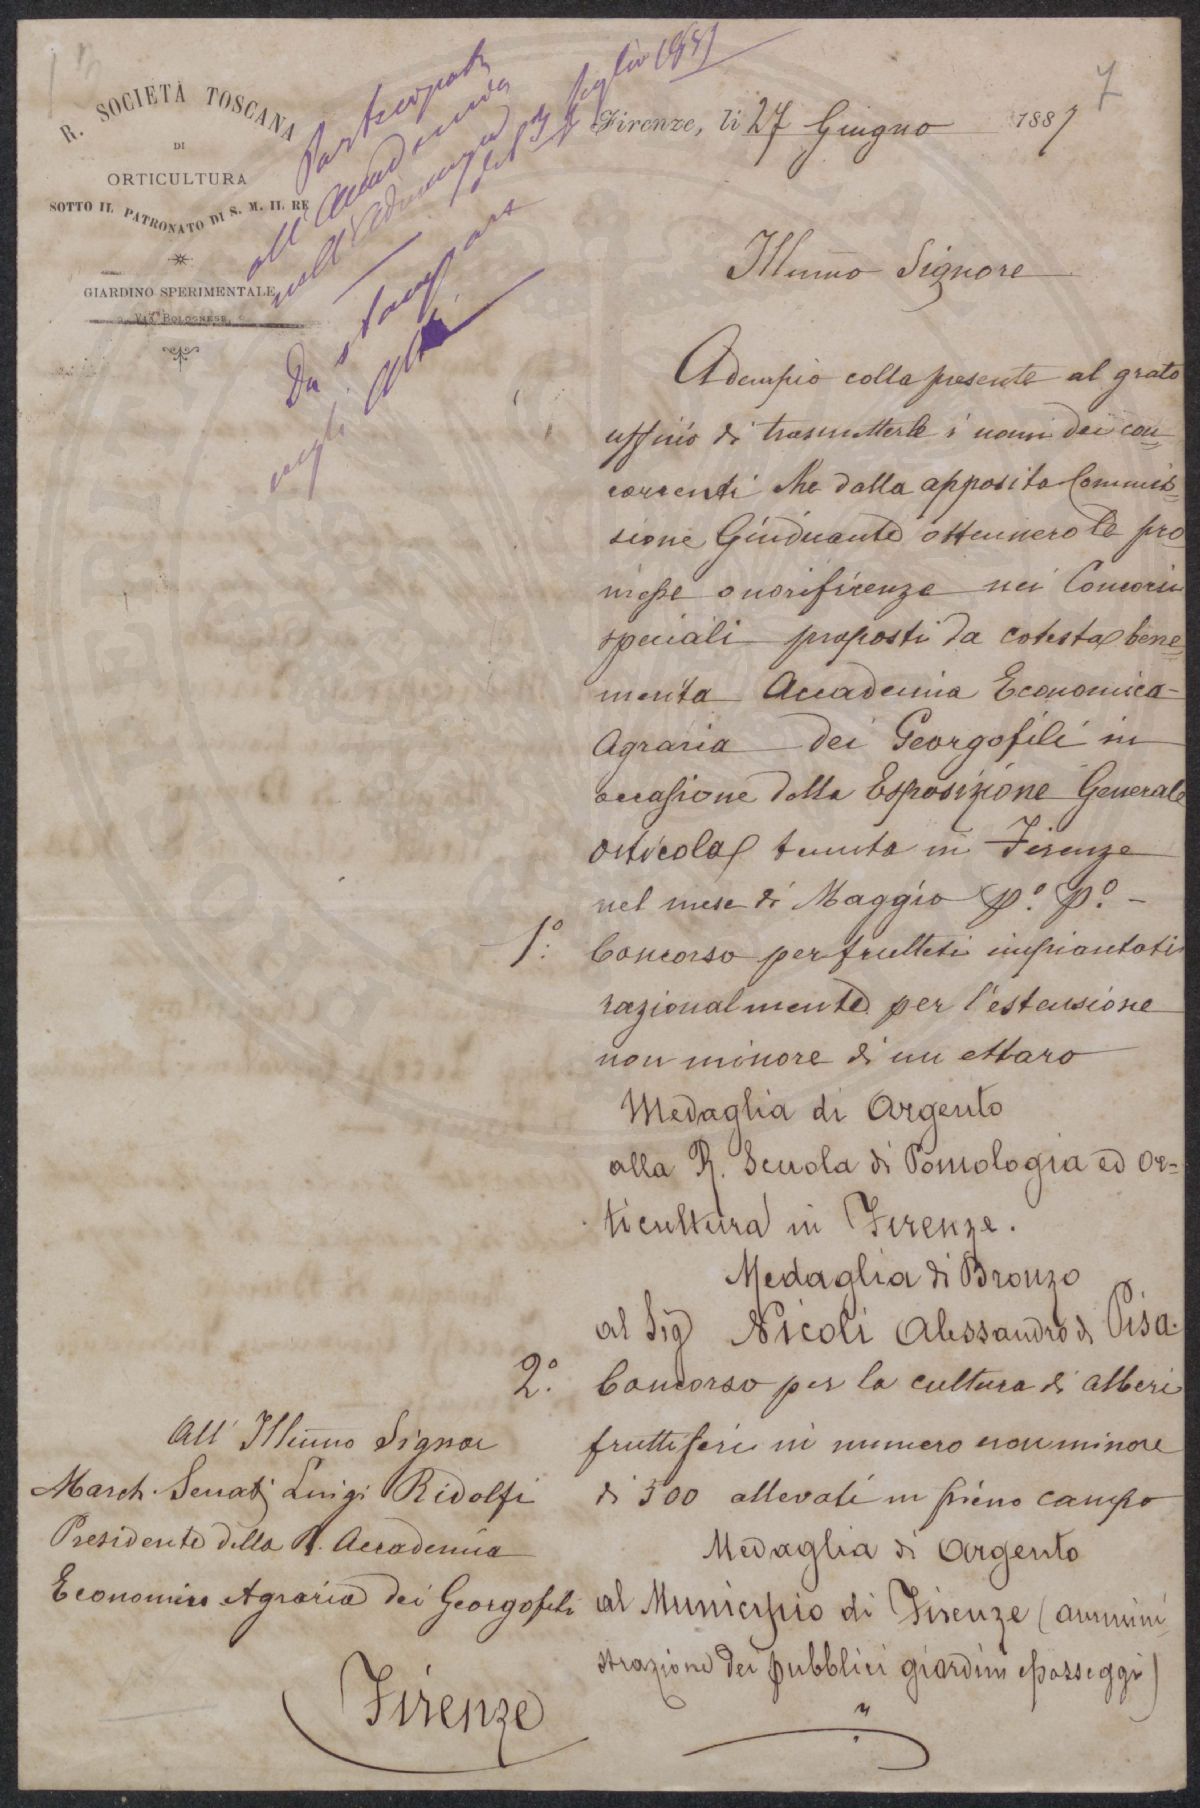 R. SOCIETÀ TOSCANA
DI
ORTICULTURA
SOTTO IL PATRONATO DI S. M. IL RE
GIARDINO SPERIMENTALE
2, VIA BOLOGNESE,
Partecipata
all'Accademia
nell'Adunanza
del 3 Luglio 1887
Da stampare
negli Atti
7
Firenze, li 27 Giugno 1887
Illumo Signore
Adempio colla presente al grato
ufficio di trasmetterle i nomi dei con=
correnti che dalla apposita Commis=
sione Giudicante ottennero le pro
messe onorificenze nei Concorsi
speciali proposti da cotesta bene=
merita Accademia Economica-
Agraria dei Georgofili in
occasione della Esposizione Generale
orticola tenuta in Firenze
nel mese di Maggio p.º p.º -
1.º Concorso per frutteti impiantati
razionalmente per l'estensione
non minore di un ettaro
Medaglia di Argento
alla R. Scuola di Pomologia ed Or=
ticultura in Firenze.
Medaglia di Bronzo
al Sig Nicoli Alessandro di Pisa.
2.º Concorso per la cultura di alberi
fruttiferi in numero non minore
di 500 allevati in pieno campo
Medaglia di Argento
al Municipio di Firenze (ammini
strazione dei pubblici giardini e passeggi)
All' Illumo Signor
March. Senat. Luigi Ridolfi
Presidente della R. Accademia
Economico Agraria dei Georgofili
Firenze